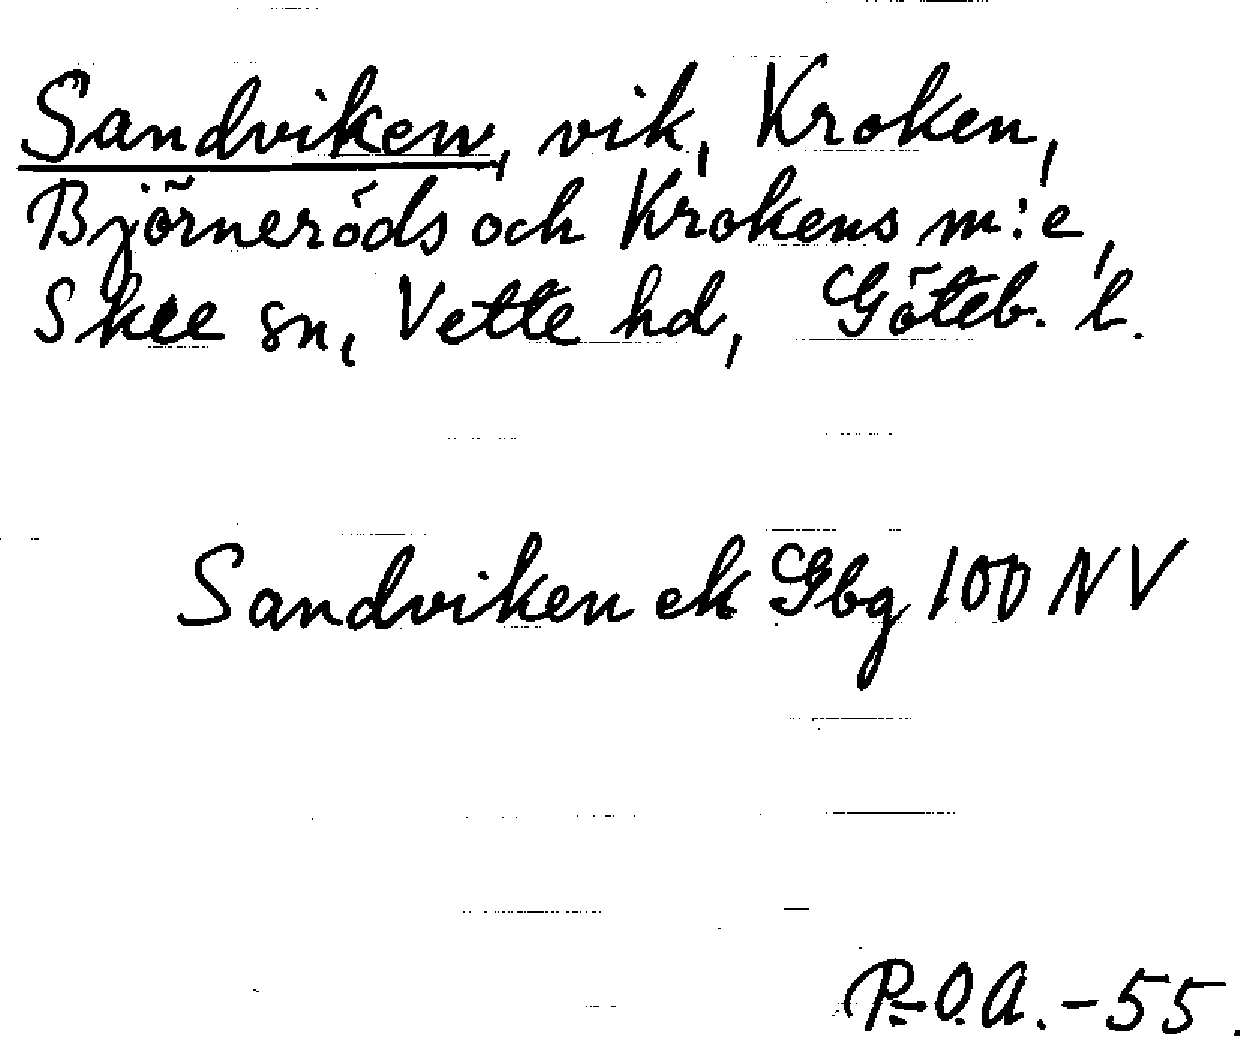 Sandviken, vik, Kroken,
Björneröds och Krokens m:e,
Skee sn, Vette hd, Göteb. l.
Sandviken ek Gbg 100 NV
P.-O.A. -55.